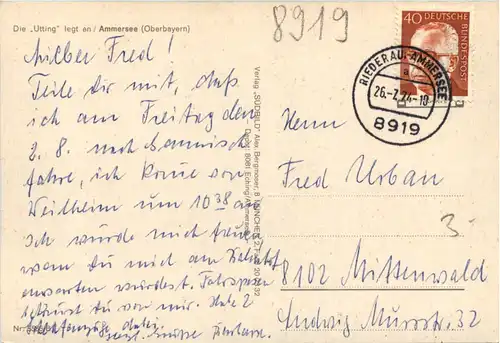 Die „Utting“ legt an / Ammersee (Oberbayern)
8919
40 DEUTSCHE BUNDESPOST
RIEDERAU, AMMERSEE
a
26.-7.74-10
8919
Lieber Fred!
Teile Dir mit, daß
ich am Freitag den
2. 8. nach
fahre, ich komme von
Weilheim um 10 38 an
Ich würde mich freuen
wenn Du mich am Bahnhof
erwarten würdest. Fahrspesen
bekommst Du von mir. Habe 2
dabei.
Grüße Barbara.
Verlag „SÜDBILD“ Alex Bergmoser, 8 MÜNCHEN 2,
Depot: 8081 Eching/Ammersee
Herrn
Fred Urban
3-
8102 Mittenwald
Ludwig Murrstr. 32
Nr.